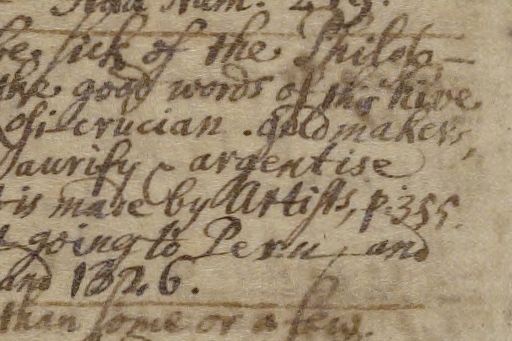 Num. 
be sick of the Philoso-
the good words of the hive
osicrucian goldmakers,
aurify & argentise
tis made by Artists, p. 355.
going to Peru, and
and 1326.
than some or a few.